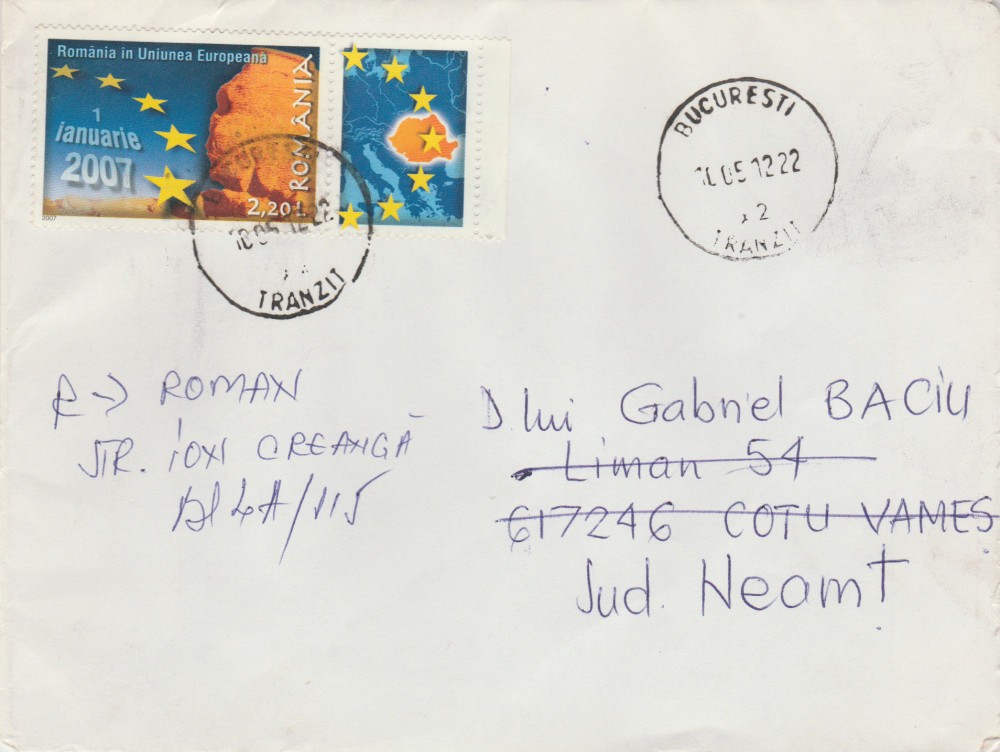 România în Uniunea Europeană
1
ianuarie
2007
ROMÂNIA
2,20 L
2007
TRANZIT
BUCURESTI
10 05 12 22
2
TRANZIT
R→ ROMAN
STR. ION CREANGĂ
Bl 4A/115
D.lui Gabriel BACIU
Liman 54
617246 COTU VAMES
Jud. Neamt